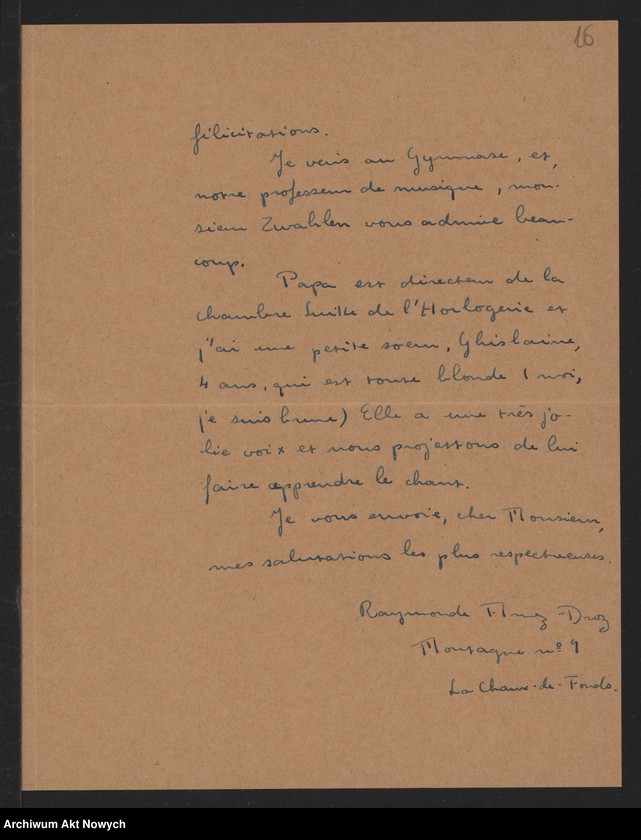 16
félicitations.
Je vais au Gymnase, et,
notre professeur de musique, mon-
sieur Zwahlen vous admire beau-
coup.
Papa est directeur de la
chambre Suisse de l'Horlogerie et
j'ai une petite soeur, Ghislaine,
4 ans, qui est toute blonde (moi,
je suis brune) Elle a une très jo-
lie voix et nous projettons de lui
faire apprendre le chant.
Je vous envoie, cher Monsieur,
mes salutations les plus respectueuses.
Raymonde Amez-Droz
Montagne nº 9
La Chaux-de-Fonds.
Archiwum Akt Nowych